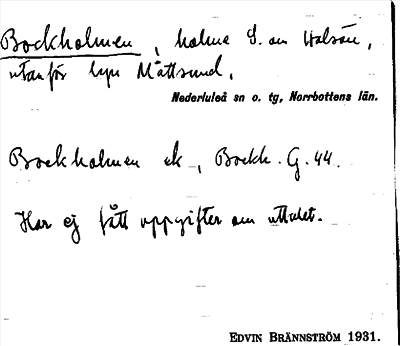 Bockholmen, holme S. om Halsön,
utanför byn Måttsund.
Nederluleå sn o. tg, Norrbottens län.
Bockholmen ek, Bockh. G. 44.
Har ej fått uppgifter om uttalet.
EDVIN BRÄNNSTRÖM 1931.